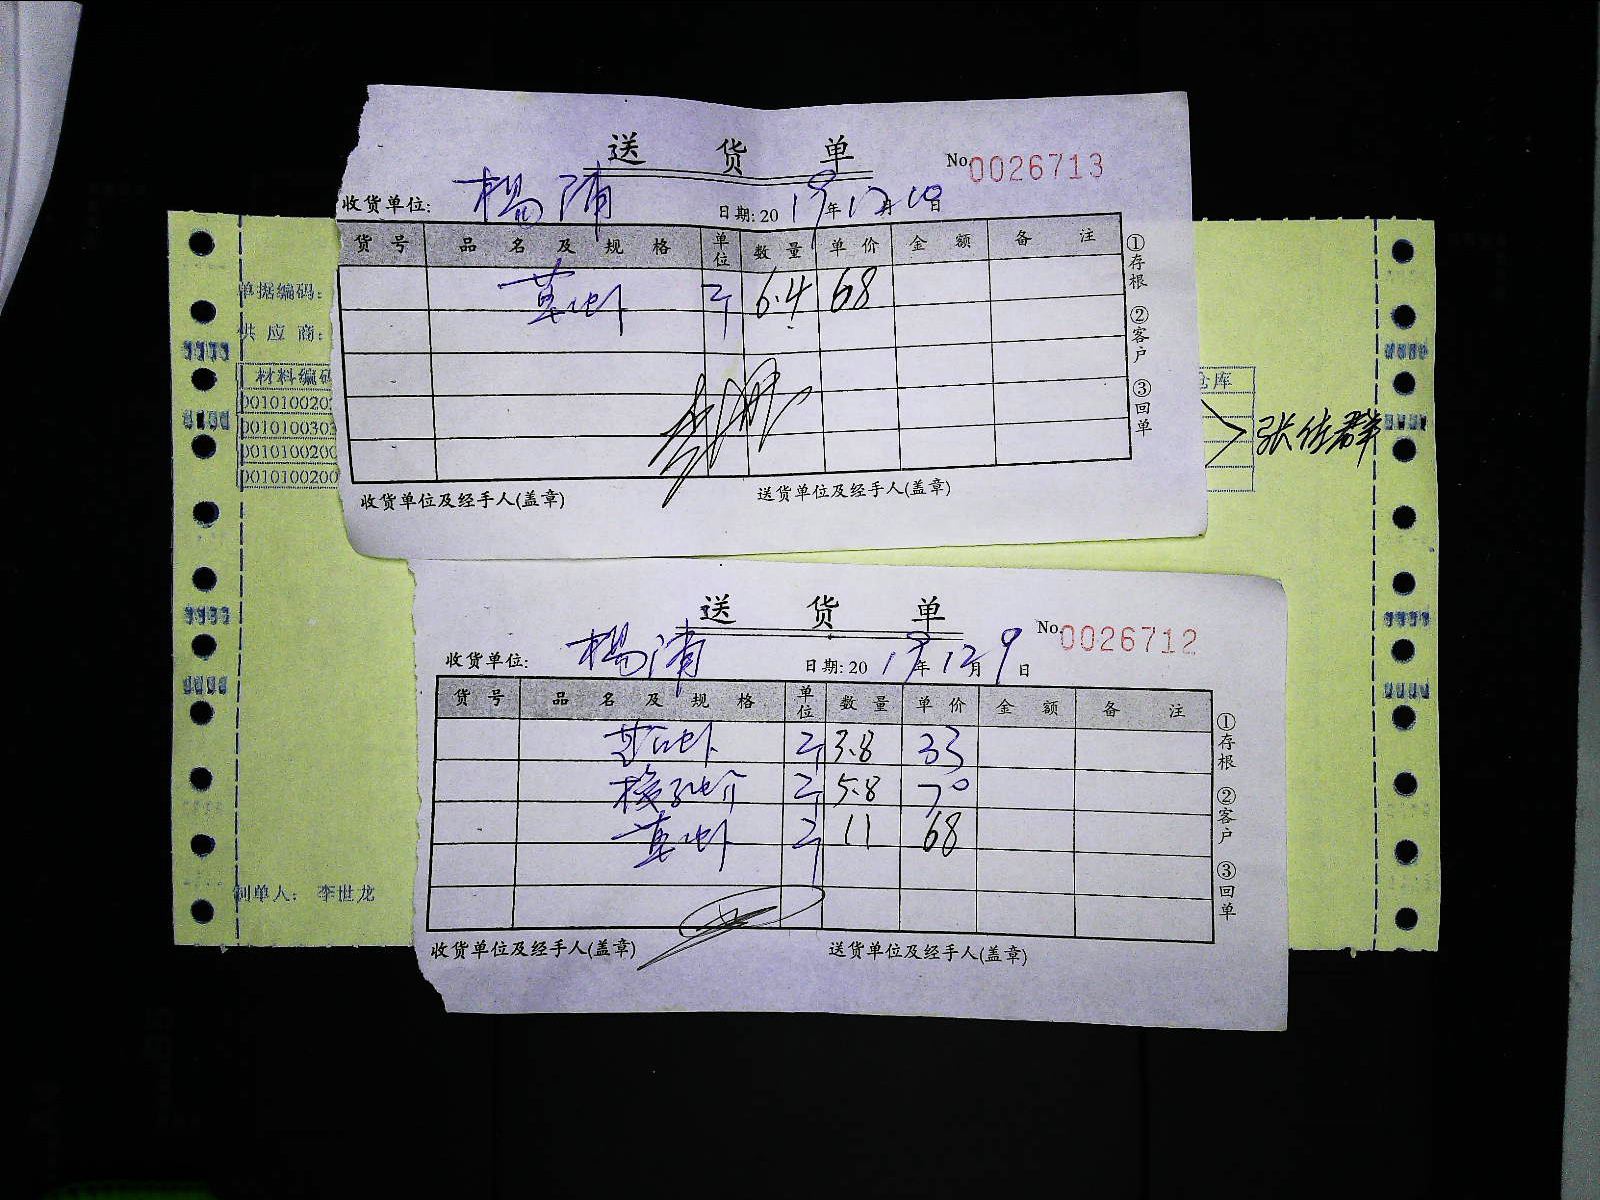 送 货 单
No.0026713
收货单位: 杨浦 日期: 2019年12月10日
货号 品名及规格 单位 数量 单价 金额 备注
斤 6.4 68
收货单位及经手人(盖章) 送货单位及经手人(盖章)
①存根 ②客户 ③回单
单据编码:
供应商:
材料编码
仓库
张佐群
送 货 单
No.0026712
收货单位: 杨浦 日期: 2019年12月9日
货号 品名及规格 单位 数量 单价 金额 备注
斤 3.8 33
斤 5.8 70
斤 11 68
收货单位及经手人(盖章) 送货单位及经手人(盖章)
①存根 ②客户 ③回单
制单人: 李世龙